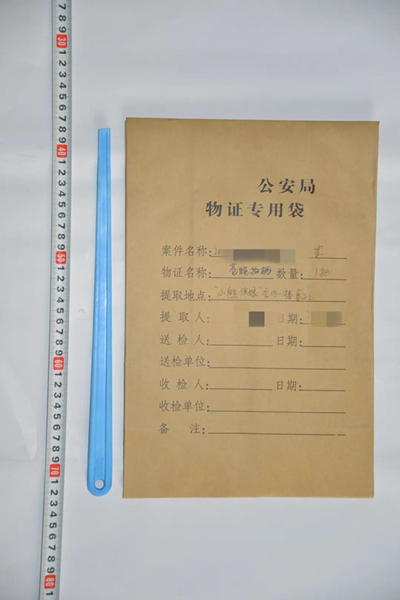 公安局
物证专用袋
案件名称:
物证名称: 数量:
提取地点:
提取人: 日期:
送检人: 日期:
送检单位:
收检人: 日期:
收检单位:
备 注:
7 8 9 30 1 2 3 4 5 6 7 8 9 40 1 2 3 4 5 6 7 8 9 50 1 2 3 4 5 6 7 8 9 60 1 2 3 4 5 6 7 8 9 70 1 2 3 4 5 6 7 8 9 80 1